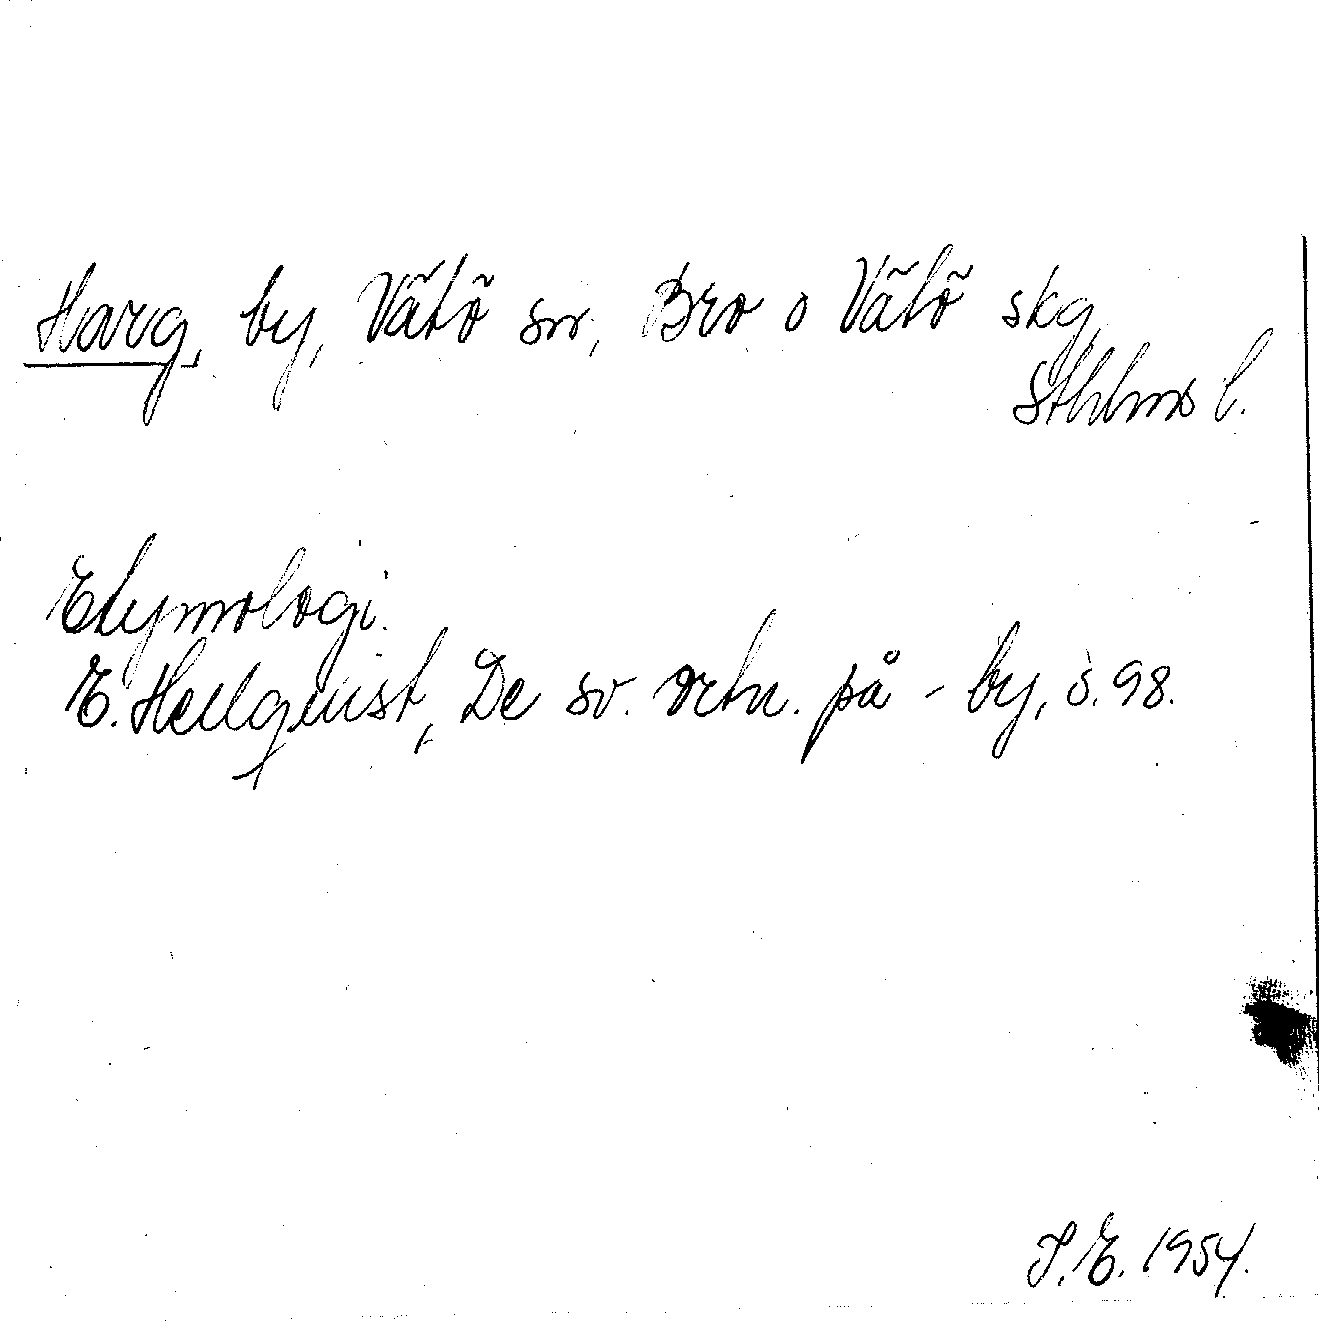 Harg, by, Vätö sn, Bro o Vätö skg,
Sthlms l.
Etymologi.
E. Hellquist, De sv. ortn. på -by, s. 98.
S. E. 1954.